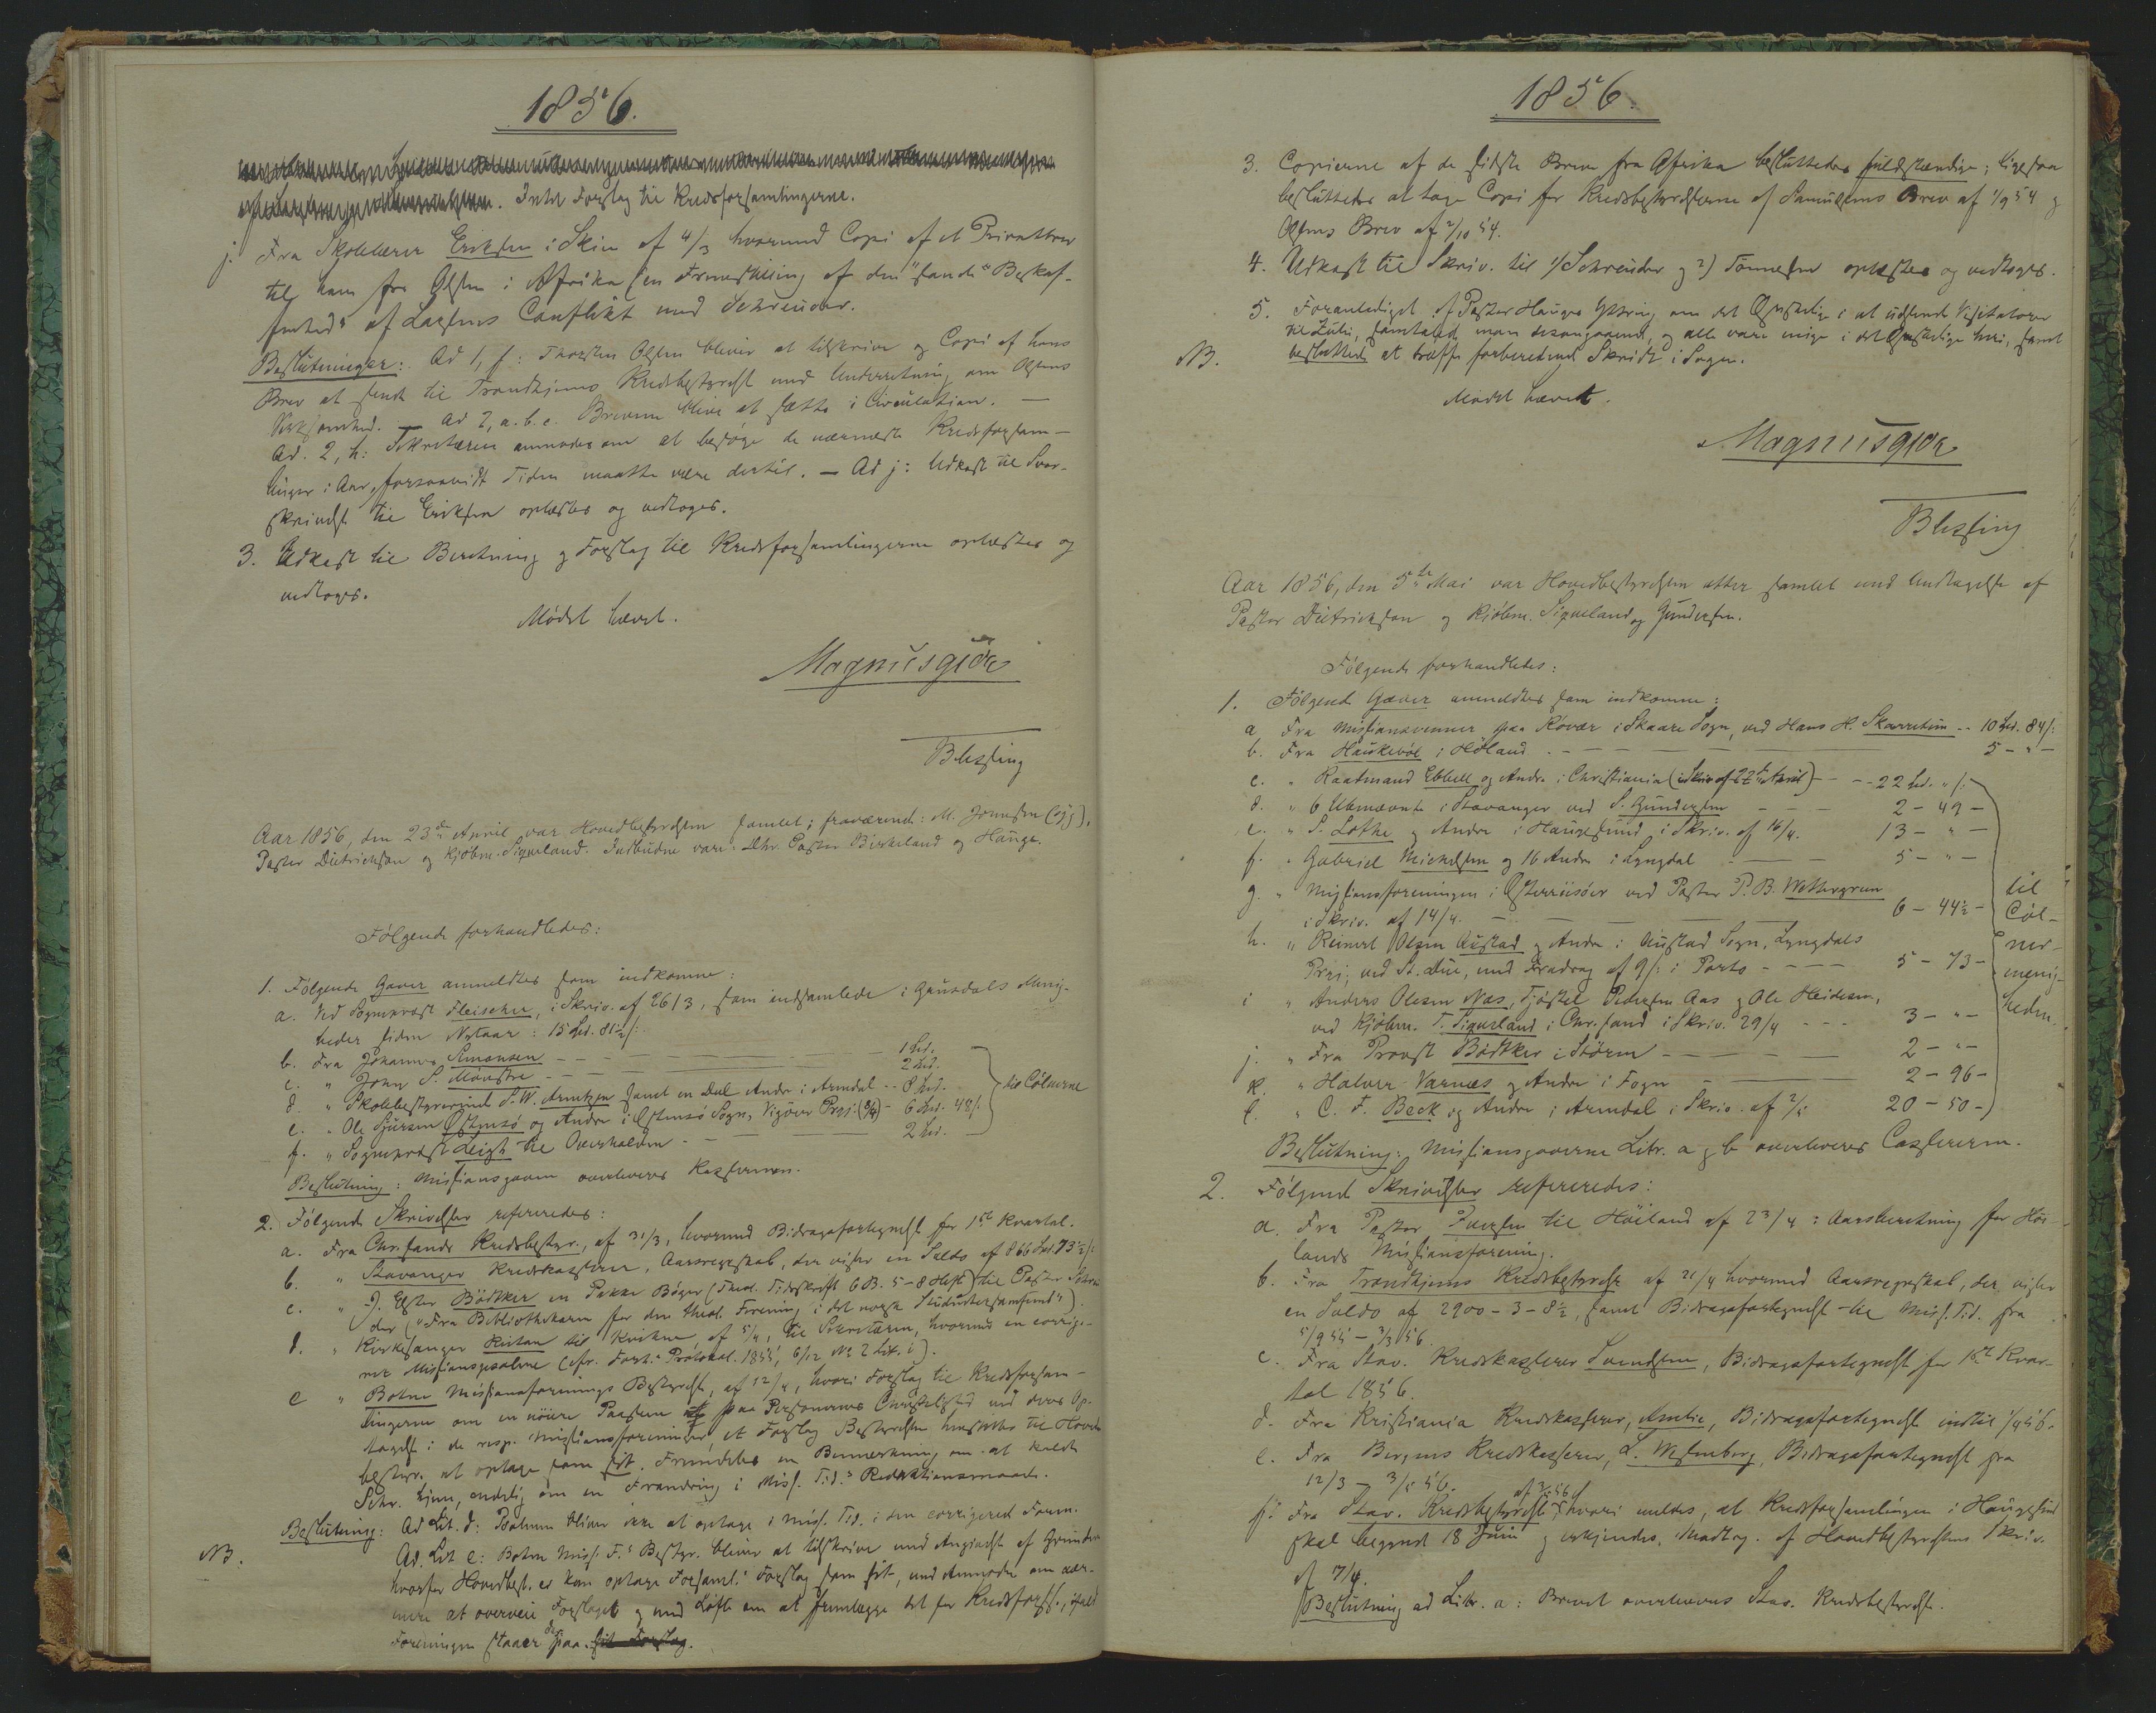 1856.
Intet Forslag til Kredsforsamlingerne.
j. Fra Skolelærer Eriksen i Skien af 4/3 hvormed Copi af et Privatbrev
til ham fra Olsen i Afrika (en Fremstilling af den "sande" Beskaf-
fenhed" af Larsens Conflikt med Schreuder.
Beslutninger: Ad 1, f: Thorsten Olsen bliver at tilskrive og Copi af hans
Brev at sende til Trondhjems Kredsbestyrelse med Underretning om Olsens
Virksomhed. — Ad 2, a. b. c. Brevene blive at sætte i Circulation. —
Ad. 2, h: Sekretæren anmodes om at besøge de nærmeste Kredsforsam-
linger i Aar, forsaavidt Tiden maatte være dertil. — Ad j: Udkast til Svar-
skrivelse til Eriksen oplæstes og vedtoges.
3. Udkast til Beretning og Forslag til Kredsforsamlingerne oplæstes og
vedtoges.
Mødet hævet.
Magnusgjøe
Blessing
Aar 1856, den 23de April var Hovedbestyrelsen samlet; fraværende: M. Jonassen (syg),
Pastor Dietrichson og Kjøbm. Sigueland. Indbudne vare: Dhr. Pastor Birkeland og Hauge.
Følgende forhandledes:
1. Følgende Gaver anmeldtes som indkomne:
a. Ved Sogneprest Fleischer, i Skriv. af 26/3, som indsamlede i Gausdals Menig-
heder siden Nytaar: 15 Spd. 81½ /:
b. Fra Johannes Simonsen — — 1 Spd.
c. " John S. Mønstre — — 2 Spd.
d. " Skolebestyrerinde S. W. Arntzen samt en Deel Andre i Arendal -- 8 Spd.
e. " Ole Sjursen Østensø og Andre i Østensø Sogn, Vigøer Prgj: (9/4) - 6 Spd. 48 /:
f. " Sogneprest Leigh til Overhalden — — 2 Spd.
til Cølnerne
Beslutning: Missionsgaven overleveres Kassereren.
2. Følgende Skrivelser refereredes:
a. Fra Chr.sands Kredsbestyr., af 31/3, hvormed Bidragsfortegnelse for 1ste Kvartal.
b. " Stavanger Kredskasserer, Aarsregnskab, der viser en Saldo af 866 Spd. 73½ /:
c. " J. Elster Bødtker en Pakke Bøger (Theol. Tidsskrift 6 B. 5-8 Heft) til Pastor Schreu-
der ("Fra Bibliothekaren for den theol. Forening i det norske Studentersamfund").
d. " Kirkesanger til Kvikne af 5/4, til Sekretæren, hvormed en corrige-
ret Missionspsalme (cfr. Forh.s Protokol 1855, 6/12 No 2 Lit. i).
e " Botne Missionsforenings Bestyrelse, af 12/4, hvori Forslag til Kredsforsam-
lingerne om en nøiere Paaseen paa Personernes Christelighed ved deres Op-
tagelse i de resp. Missionsforeninger, et Forslag Bestyrelsen henstiller til Hoved-
bestyr. at optage som sit. Fremdeles en Bemærkning om at kalde
Schr. hjem, endelig om en Forandring i Miss. Tid.s Redaktionsmaade.
Beslutning: Ad Lit. d: Psalmen bliver ikke at optage i Miss. Tid. i den corrigerede Form.
NB. Ad. Lit e: Botne Miss. F.s Bestyr. bliver at tilskrive med Angivelse af Grunden
hvorfor Hovedbest. ei kan optage Forsaml.s Forslag som sit, med Anmodn om nær-
mere at overveie Forslaget og med Løfte om at fremlægge det for Kredsfors., ifald
Foreningen staaer derpaa. sit Forslag.
1856.
3. Copierne af de sidste Breve fra Afrika besluttedes fuldstændige; ligesaa
besluttedes at tage Copi for Kredsbestyrelserne af Samuelsens Brev af 1/9 54 og
Olsens Brev af 2/10 54.
4. Udkast til Skriv. til 1) Schreuder og 2) Tønnesen oplæstes og vedtoges.
5. Foranlediget af Pastor Hauges Yttring om det Ønskelige i at udsende Visitatorer
til Zulu, samtalede man desangaaende, og alle vare enige i det Ønskelige heri, samt
NB. besluttede at træffe forberedende Skridt i Sagen.
Mødet hævet.
Magnusgjøe
Blessing
Aar 1856, den 5te Mai var Hovedbestyrelsen atter samlet med Undtagelse af
Pastor Dietrichson og Kjøbm. Sigueland og Gundersen.
Følgende forhandledes:
1. Følgende Gaver anmeldtes som indkomne:
a Fra Missionsvenner paa Røvær i Skaare Sogn, ved Hans H. Skarretun -- 10 Spd. 84 /:
b. Fra Haukebøe i Høland — — 5 - " -
c. " Raadmand Ebbell og Andre i Christiania (i Skriv. af 22de April) -- 22 Spd. " /:
d. " 6 Ubenævnte i Stavanger ved S. Gundersen — 2 - 49 -
e. " S. Lothe og Andre i Haugesund i Skriv. af 16/4. 13 - " -
f. " Gabriel Michelsen og 16 Andre i Lyngdal — 5 - " -
g. " Missionsforeningen i Østerriisøer ved Pastor P. B. Wettergreen
i Skriv. af 14/4. — 6 - 44½ -
h. " Reinert Olsen Austad og Andre i Austad Sogn, Lyngdals
Prgj. ved St. Due, med Fradrag af 9 /: i Porto - - - 5 - 73 -
i " Anders Olesen Næs, Tjøstel Pedersen Aas og Ole Heidesen,
ved Kjøbm. T. Sigueland i Chr.sand i Skriv. 29/4 - - - 3 - " -
j. " Fra Provst Bødtker i Støren — — 2 - " -
k. " Halvor Varnæs og Andre i Fogn — — 2 - 96 -
l. " C. F. Beck og Andre i Arendal i Skriv. af 2/5 20 - 50 -
til
Cøl-
ner-
menig-
heden.
Beslutning: Missionsgaverne Litr. a og b overleveres Cassereren.
2. Følgende Skrivelser refereredes:
a. Fra Pastor Iversen til Høiland af 23/4: Aarsberetning for Høi-
lands Missionsforening.
b. Fra Trondhjems Kredsbestyrelse af 21/4 hvormed Aarsregnskab, der viser
en Saldo af 2900 - 3 - 8½, samt Bidragsfortegnelse til Miss. Tid. fra
5/9 55 - 3/3 56.
c. Fra Stav. Kredskasserer Svendsen, Bidragsfortegnelse for 1ste Kvar-
tal 1856.
d. Fra Kristiania Kredskasserer, Amlie, Bidragsfortegnelse indtil 1/4 56.
e. Fra Bergens Kredskasserer, L. Wesenberg, Bidragsfortegnelse fra
12/3 - 3/5 56.
f. Fra Stav. Kredsbestyrelse af 3/5 56 hvori meldes, at Kredsforsamlingen i Haugesund
skal begynde 18 Juni og erkjendes Modtag. af Hovedbestyrelsens Skriv.
af 7/4.
Beslutning ad Litr. a: Brevet overleveres Stav. Kredsbestyrelse.